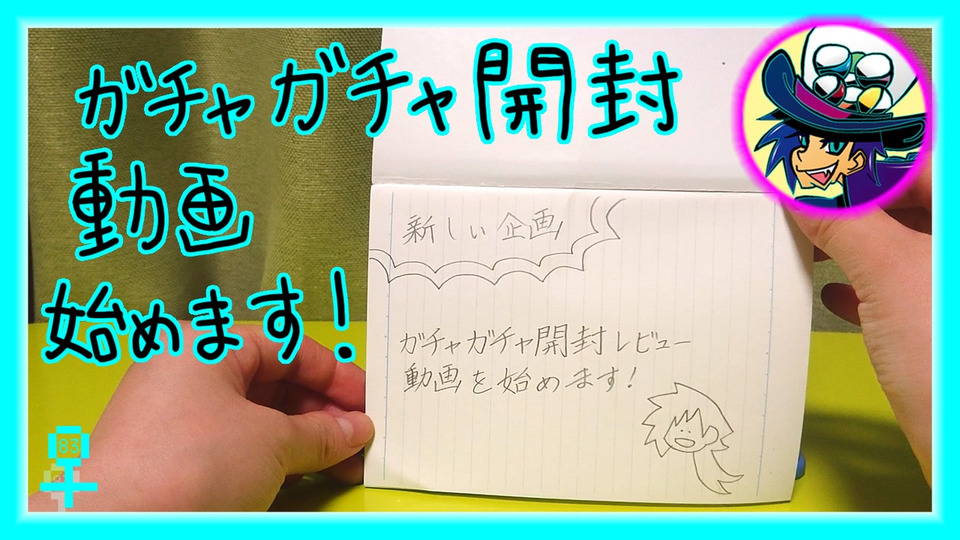 ガチャガチャ開封
動画
始めます!
新しい企画
ガチャガチャ開封レビュー
動画を始めます!
83